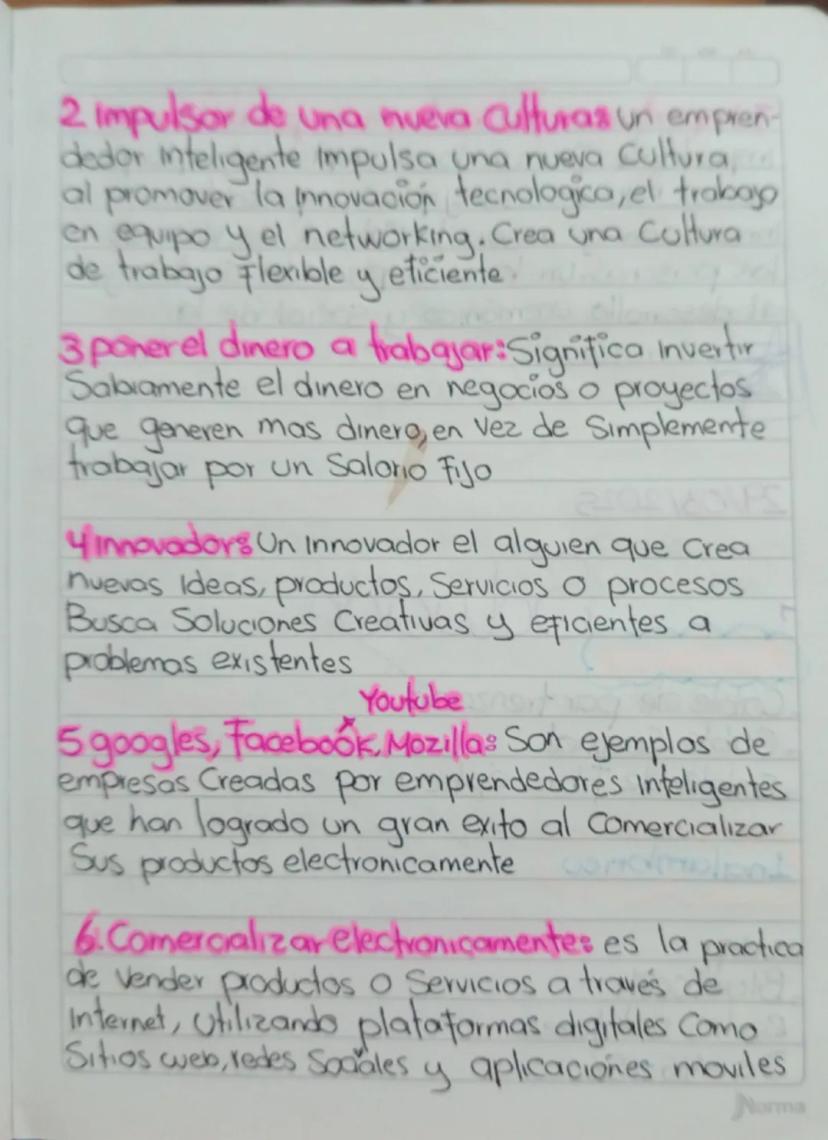 2 Impulsor de una nueva culturas: un empren-
dedor inteligente impulsa una nueva cultura
al promover la innovación tecnologica, el trabajo
en equipo y el networking. Crea una cultura
de trabajo flexible y eficiente
3 poner el dinero a trabajar: Significa invertir
Sabiamente el dinero en negocios o proyectos
que generen mas dinero, en vez de simplemente
trabajar por un Salario Fijo
4 innovador: Un innovador el alguien que crea
nuevas Ideas, productos, Servicios o procesos
Busca Soluciones Creativas y eficientes a
problemas existentes
Youtube
5 googles, Facebook, Mozilla: Son ejemplos de
empresas Creadas por emprendedores inteligentes
que han logrado un gran exito al Comercializar
Sus productos electronicamente
6. Comercializar electronicamente: es la practica
de vender productos o Servicios a través de
Internet, utilizando plataformas digitales Como
Sitios web, redes Sociales y aplicaciones moviles
Norma